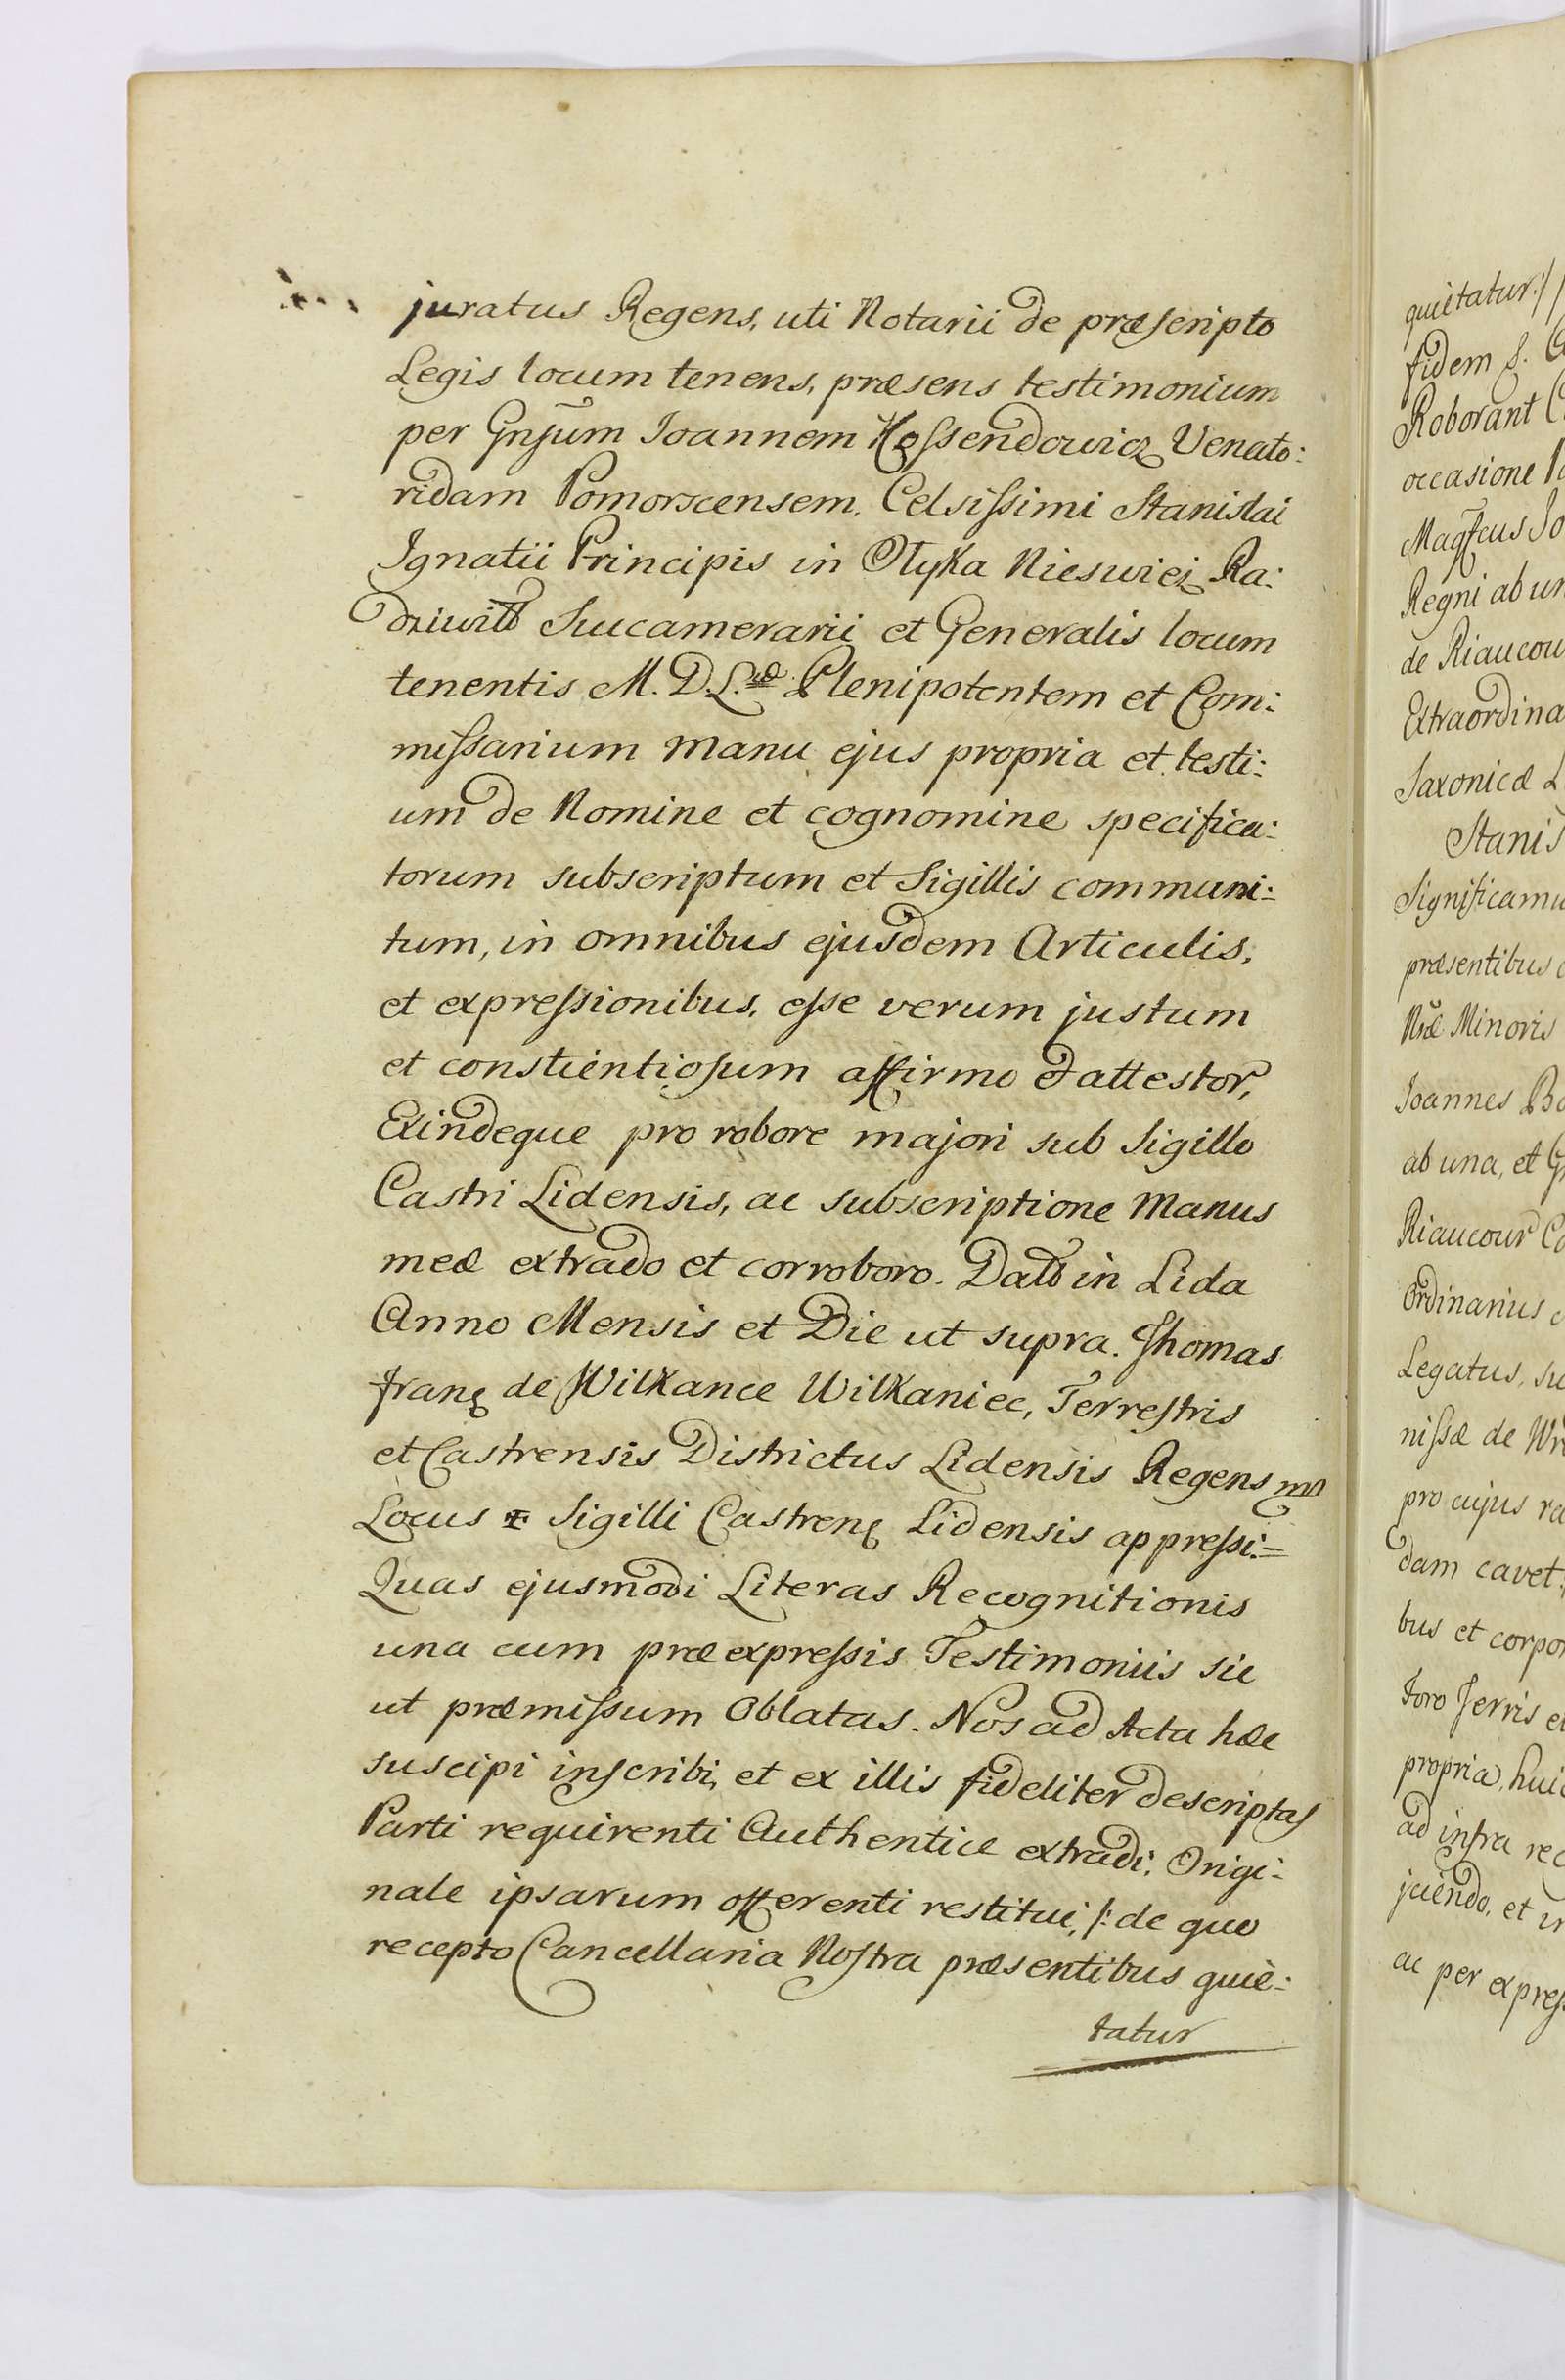 juratus Regens, uti Notarii de præscripto
Legis locum tenens, præsens testimonium
per Gnsum Joannem Hossendowicz Venato:
ridam Pomorscensem. Celsissimi Stanislai
Ignatii Principis in Olyka Nieswiez Ra:
dziwill Succamerarii et Generalis locum
tenentis M. D. L. Plenipotentem et Com:
missarium manu ejus propria et testi:
um de Nomine et cognomine specifica:
torum subscriptum et Sigillis communi:
tum, in omnibus ejusdem Articulis,
et expressionibus, esse verum justum
et constientiosum affirmo et attestor,
Exindeque pro robore majori sub Sigillo
Castri Lidensis, ac subscriptione Manus
meæ extrado et corroboro. Datt in Lida
Anno Mensis et Die ut supra. Thomas
Franc de Wilkance Wilkaniec, Terrestris
et Castrensis Districtus Lidensis Regens mp
Locus Sigilli Castren Lidensis appressi:=
Quas ejusmodi Literas Recognitionis
una cum præexpressis Testimoniis sic
ut præmissum Oblatas. Nos ad Acta hæc
suscipi inscribi, et ex illis fideliter descriptas
Parti requirenti Authentice extradi. Origi:
nale ipsarum offerenti restitui, /: de quo
recepto Cancellaria Nostra præsentibus quie:
tatur
quietatur:/
fidem S.
Roborant
occasione
Magfcus Jo
Regni ab un
de Riaucou
Extraordina
Saxonicæ L
Stanis
Significamu
præsentibus
Nræ Minoris
Joannes Bo
ab una, et G
Riaucour Co
Ordinarius
Legatus, su
nissæ de Wr
pro cujus ra
dam cavet,
bus et corpor
foro Terris et
propria, huic
ad infra rec
jiciendo, et in
ac per expres